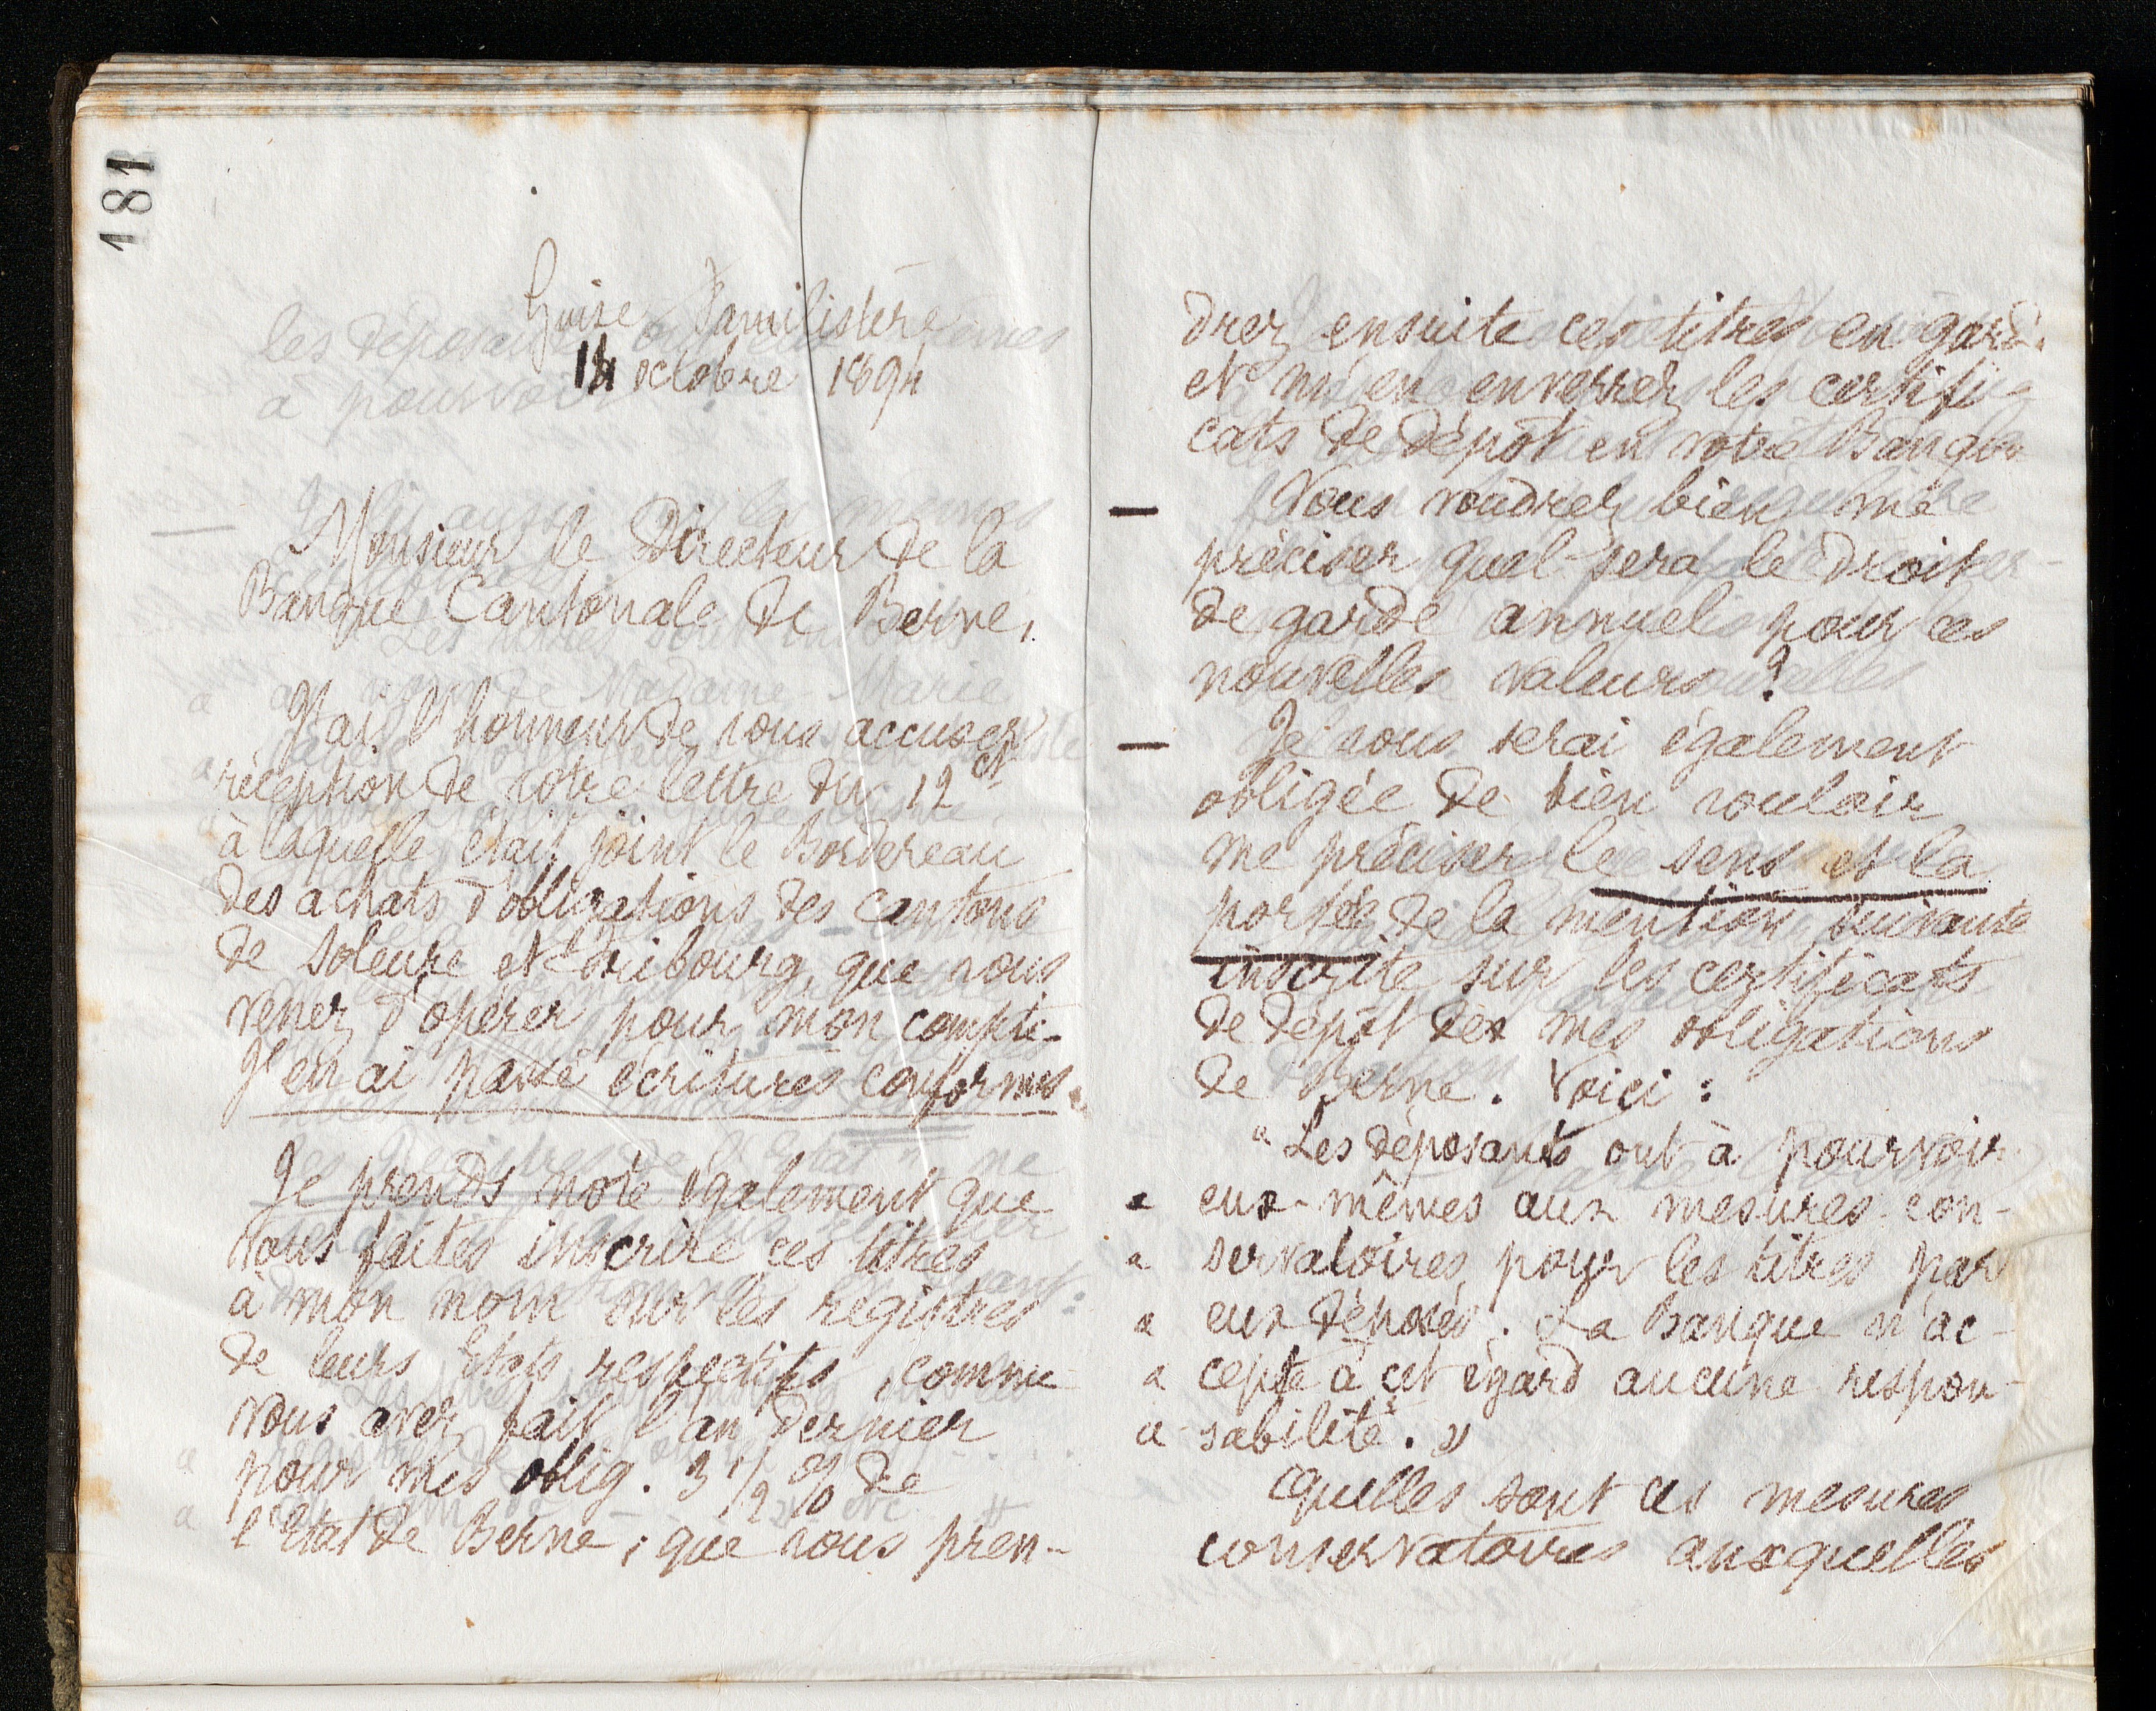 181
Guise Familistère
14 octobre 1894
Monsieur le Directeur de la
Banque Cantonale de Berne,
J'ai l'honneur de vous accuser
réception de votre lettre du 12 ct
à laquelle était joint le Bordereau
des achats d'obligations des cantons
de Soleure et Fribourg, que vous
venez d'opérer pour mon compte.
J'en ai passé écritures conformes.
Je prends note également que
vous faites inscrire ces titres
à mon nom sur les registres
de leurs Etats respectifs, comme
vous avez fait l'an dernier
pour mes oblig. 3 1/2 % de
l'Etat de Berne; que vous pren-
drez ensuite ces titres en garde
et m'en enverrez les certifi-
cats de dépôt en votre Banque
— Vous voudrez bien me
préciser quel sera le droit
de garde annuel pour ces
nouvelles valeurs?
— Je vous serai également
obligée de bien vouloir
me préciser le sens et la
portée de la mention suivante
inscrite sur les certificats
de dépôt des mes obligations
de Berne. Voici :
« Les déposants ont à pourvoir
« eux-mêmes aux mesures con-
« servatoires pour les titres par
« eux déposés. La Banque n'ac-
« cepte à cet égard aucune respon-
« sabilité. »
Quelles sont ces mesures
conservatoires auxquelles